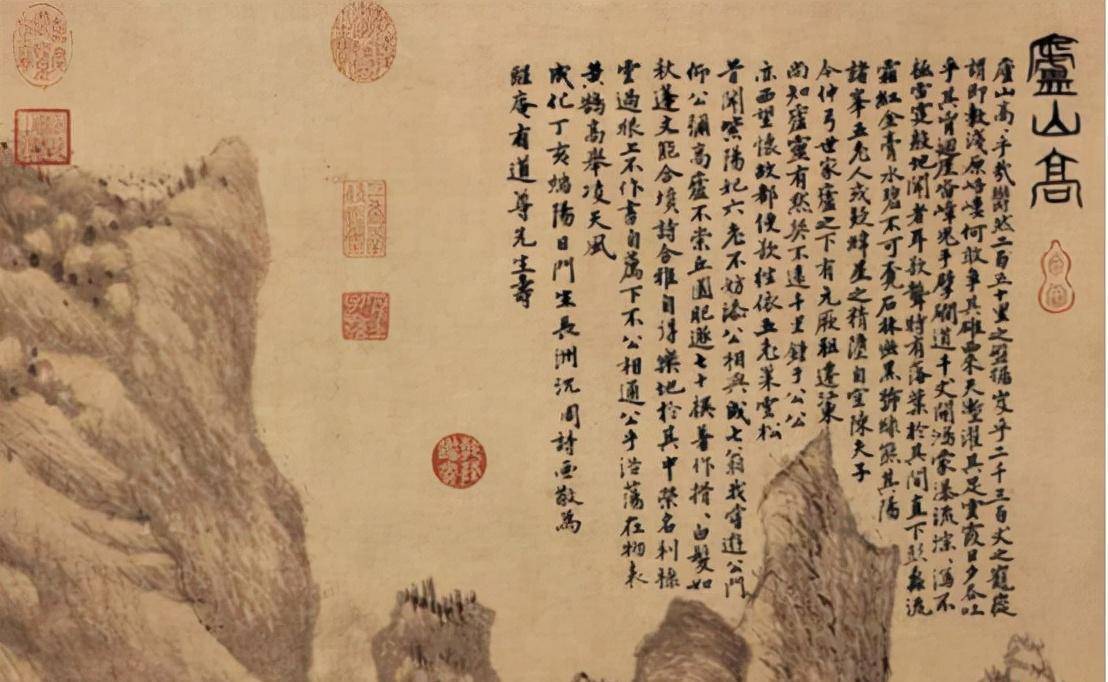 廬山高
廬山高、乎哉鬱然二百五十里之盤踞岌乎二千三百丈之巃嵷
謂即敷淺原培嶁何敢爭其雄西來天塹濯其足雲霞日夕吞吐
乎其胸迴崖沓嶂鬼手擘澗道千丈開鴻蒙瀑流淙、瀉不
極雷霆殷地聞者耳欲聾時有落葉於其間直下彭蠡流
霜紅金膏水碧不可覓石林幽黑號綠熊其陽
諸峯五老人或疑緯星之精墮自空陳夫子
今仲弓世家廬之下有元厥祖遷江東
尚知廬靈有默契不遠千里鍾于公公
亦西望懷故都便欲往依五老巢雲松
昔聞紫陽妃六老不妨添公相與成七翁我嘗遊公門
仰公彌高廬不崇丘園肥遯七十禩著作揩、白髮如
秋蓬文能合墳詩合雅自得樂地於其中榮名利祿
雲過眼上不作書自薦下不公相通公乎浩蕩在物表
黃鵠高舉凌天風
成化丁亥端陽日門生長洲沈周詩畫敬爲
醒庵有道尊先生壽